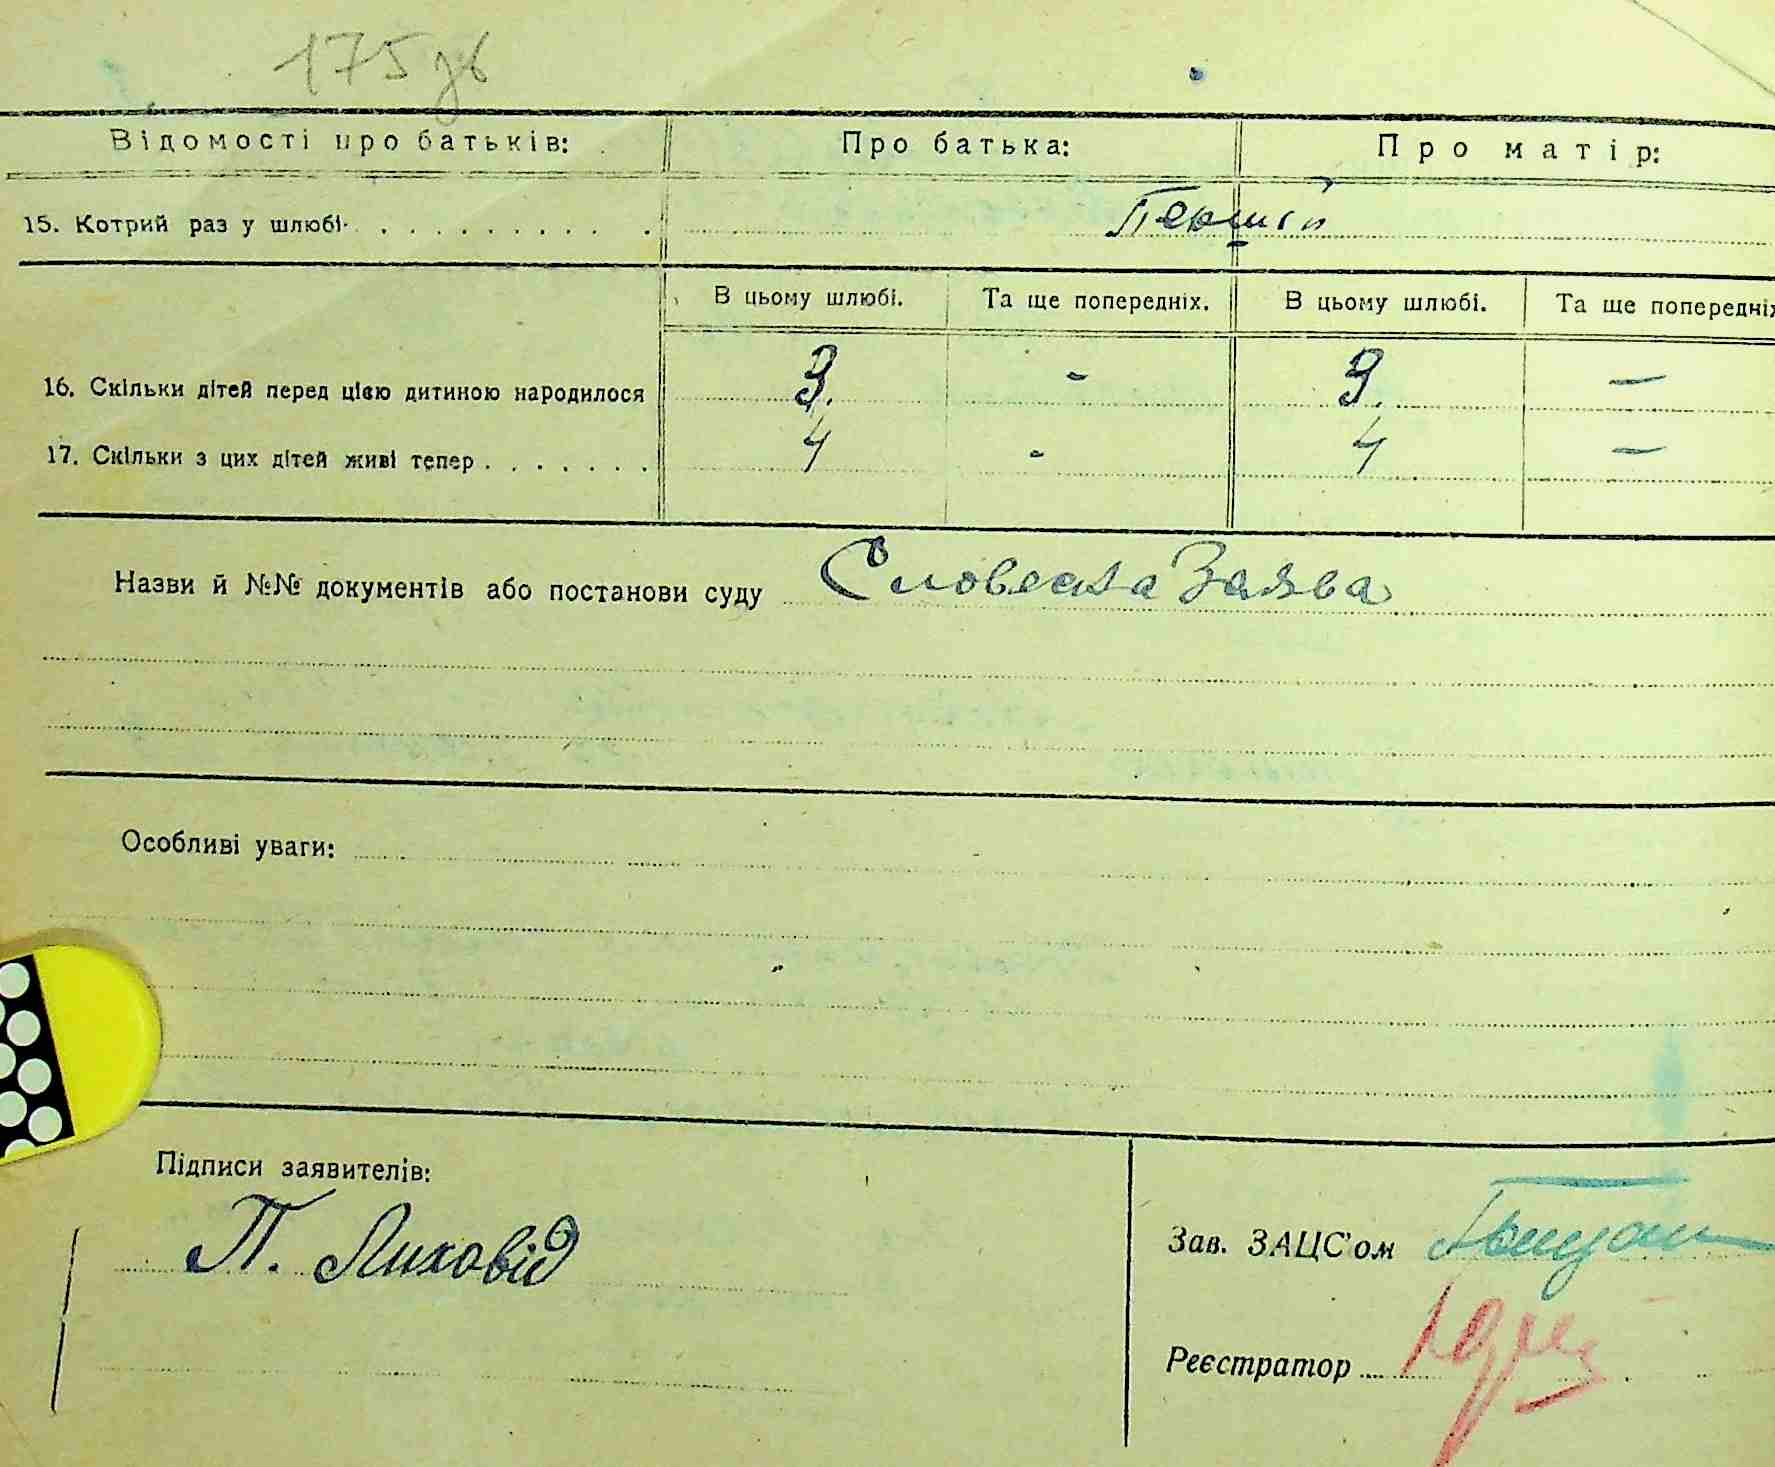 175 зв
Відомості про батьків: Про батька: Про матір:
15. Котрий раз у шлюбі . . . . . . . . . . Перший
В цьому шлюбі. Та ще попередніх. В цьому шлюбі. Та ще попередніх
16. Скільки дітей перед цією дитиною народилося 3. - 3. —
17. Скільки з цих дітей живі тепер . . . . . . . 4 - 4 —
Назви й №№ документів або постанови суду Словесна Заява
Особливі уваги:
Підписи заявителів:
П. Лиховід
Зав. ЗАЦС'ом
Реєстратор